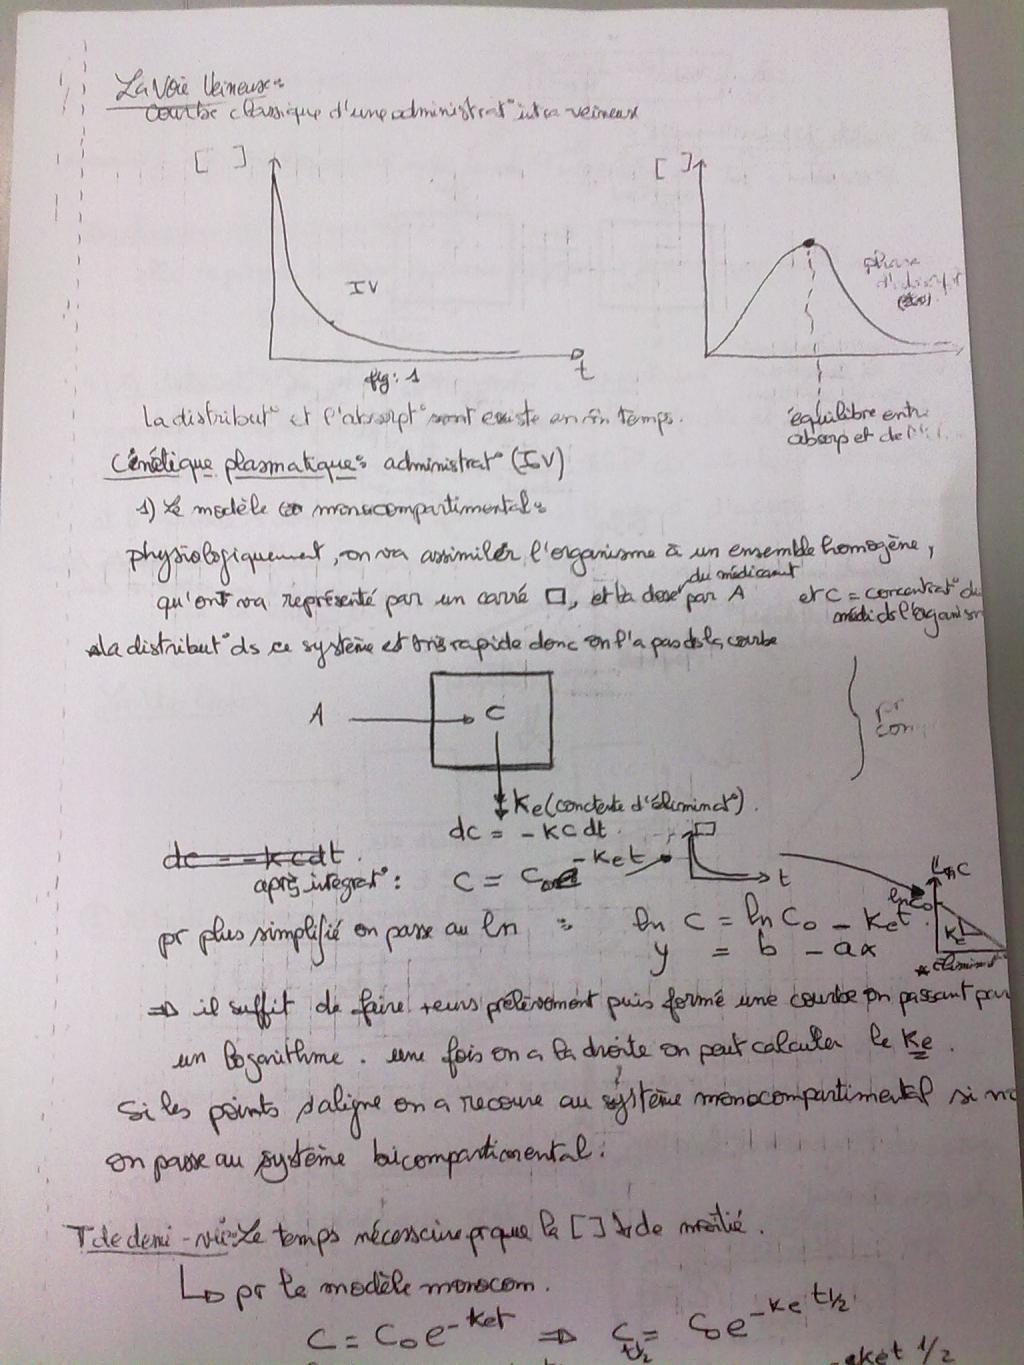 La Voie Veineuse:
courbe classique d'une administrat° intra veineux
[ ]
[ ]
IV
phase
d'absorpt°
t
fig: 1
la distribut° et l'absorpt° sont existe en fin temps.
équilibre entre
absorp et de l'
Cénétique plasmatique: administrat° (IV)
1) Le modèle monocompartimental:
physiologiquement, on va assimiler l'organisme à un ensemble homogène,
qu'ont va représenté par un carré □, et la dose du médicamt par A et C = concentrat° du
médic ds l'organism
la distribut° ds ce système est très rapide donc on l'a pas ds la courbe
A
C
pr
com
Ke (constente d'éliminat°).
dc = -KC dt.
dc = -kcdt.
après integrat°: C = C₀e^-Ket
t
Ln C
ln C₀
Ke
pr plus simplifié on passe au ln : ln C = ln C₀ - Ket
y = b - ax
* éliminat°
⇒ il suffit de faire +eurs prélèvement puis formé une courbe en passant par
un logarithme. une fois on a la droite on peut calculer le Ke.
Si les points s'aligne on a recoure au système monocompartimental si no
on passe au système bicompartimental.
T de demi-vie: Le temps nécessaire pr que la [ ] ↓ de moitié.
↳ pr le modèle monocom.
C = C₀e^-Ket ⇒ C t1/2 = C₀e^-Ke t1/2
-eket 1/2